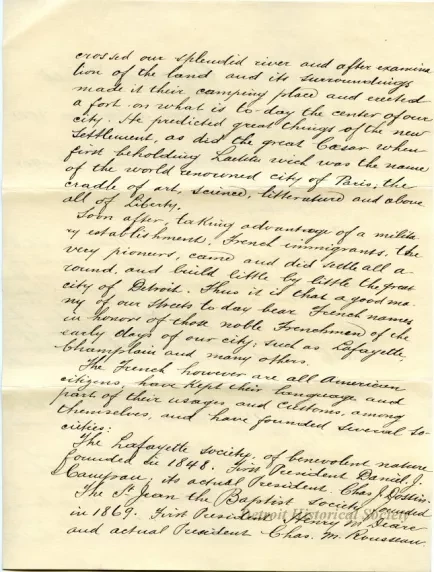 crossed our splendid river and after examina
tion of the land and its surroundings
made it their camping place and erected
a fort on what is to-day the center of our
city. He predicted great things of the new
Settlement, as did the great Cæsar when
first beholding Lutetia wich was the name
of the world renowned city of Paris, the
cradle of art, science, litterature and above
all of Liberty.
Soon after, taking advantage of a milita
ry establishment, French immigrants, the
very pioners, came and did settle all a-
round, and build little by little the great
city of Detroit. Thus it is that a good ma-
ny of our streets to day bear French names
in honors of those noble Frenchmen of the
early days of our city; such as Lafayette,
Champlain and many others.
The French however are all American
citizens, have kept their language and
part of their usages and customs, among
themselves, and have founded several so-
cieties:
The Lafayette society, of benevolent nature
founded in 1848. First President David J.
Campau; its actual President Chas. J.
The St. Jean the Baptist Society founded
in 1869. First President Henry M.
and actual President Chas. M. Rousseau.
Detroit Historical Society